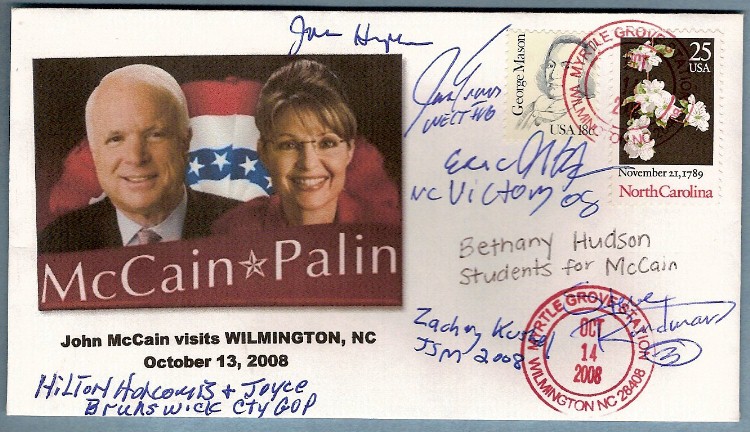 George Mason
USA 18c
25
USA
November 21, 1789
North Carolina
MYRTLE GROVE STATION
WILMINGTON NC
NC Victory 08
Bethany Hudson
Students for McCain
McCain Palin
John McCain visits WILMINGTON, NC
October 13, 2008
Hilton Holcomb & Joyce
Brunswick Cty GOP
Zachary
JSM 2008
Steve
MYRTLE GROVE STATION
OCT
14
2008
WILMINGTON NC 28408